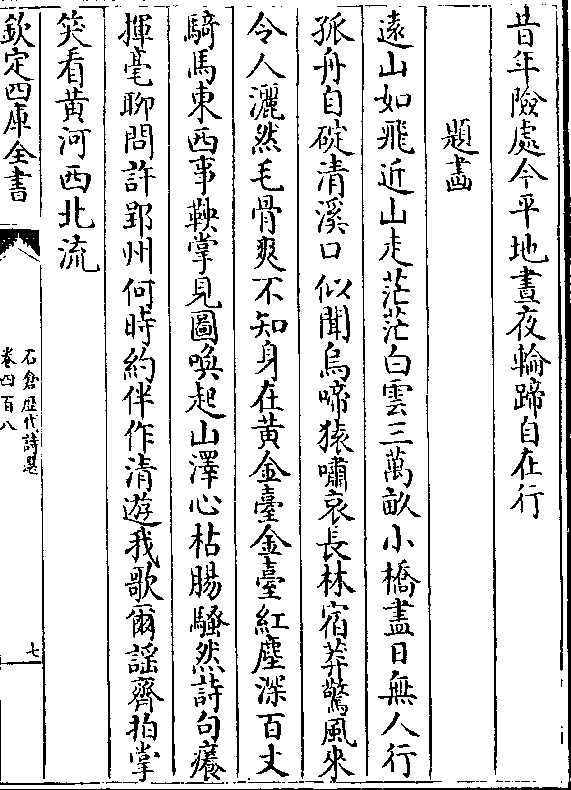 昔年險處今平地晝夜輪蹄自在行
題畫
遠山如飛近山走茫茫白雲三萬畝小橋盡日無人行
孤舟自碇清溪口似聞烏啼猿嘯哀長林宿莽驚風來
令人灑然毛骨爽不知身在黄金臺金臺紅塵深百丈
騎馬東西事鞅掌見圖喚起山澤心枯腸騷然詩句癢
揮毫聊問許郢州何時約伴作清遊我歌爾謡齊拍掌
笑看黄河西北流
欽定四庫全書
石倉歷代詩選
卷四百八
七